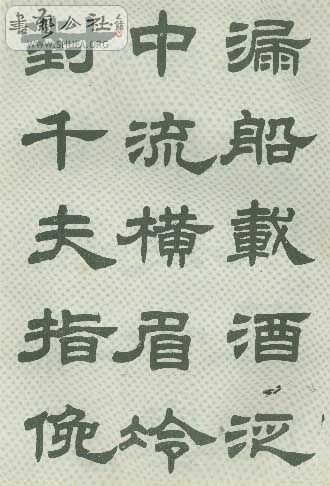 漏船載酒泛
中流橫眉冷
對千夫指俛
書藝公社
WWW.SHUFA.ORG